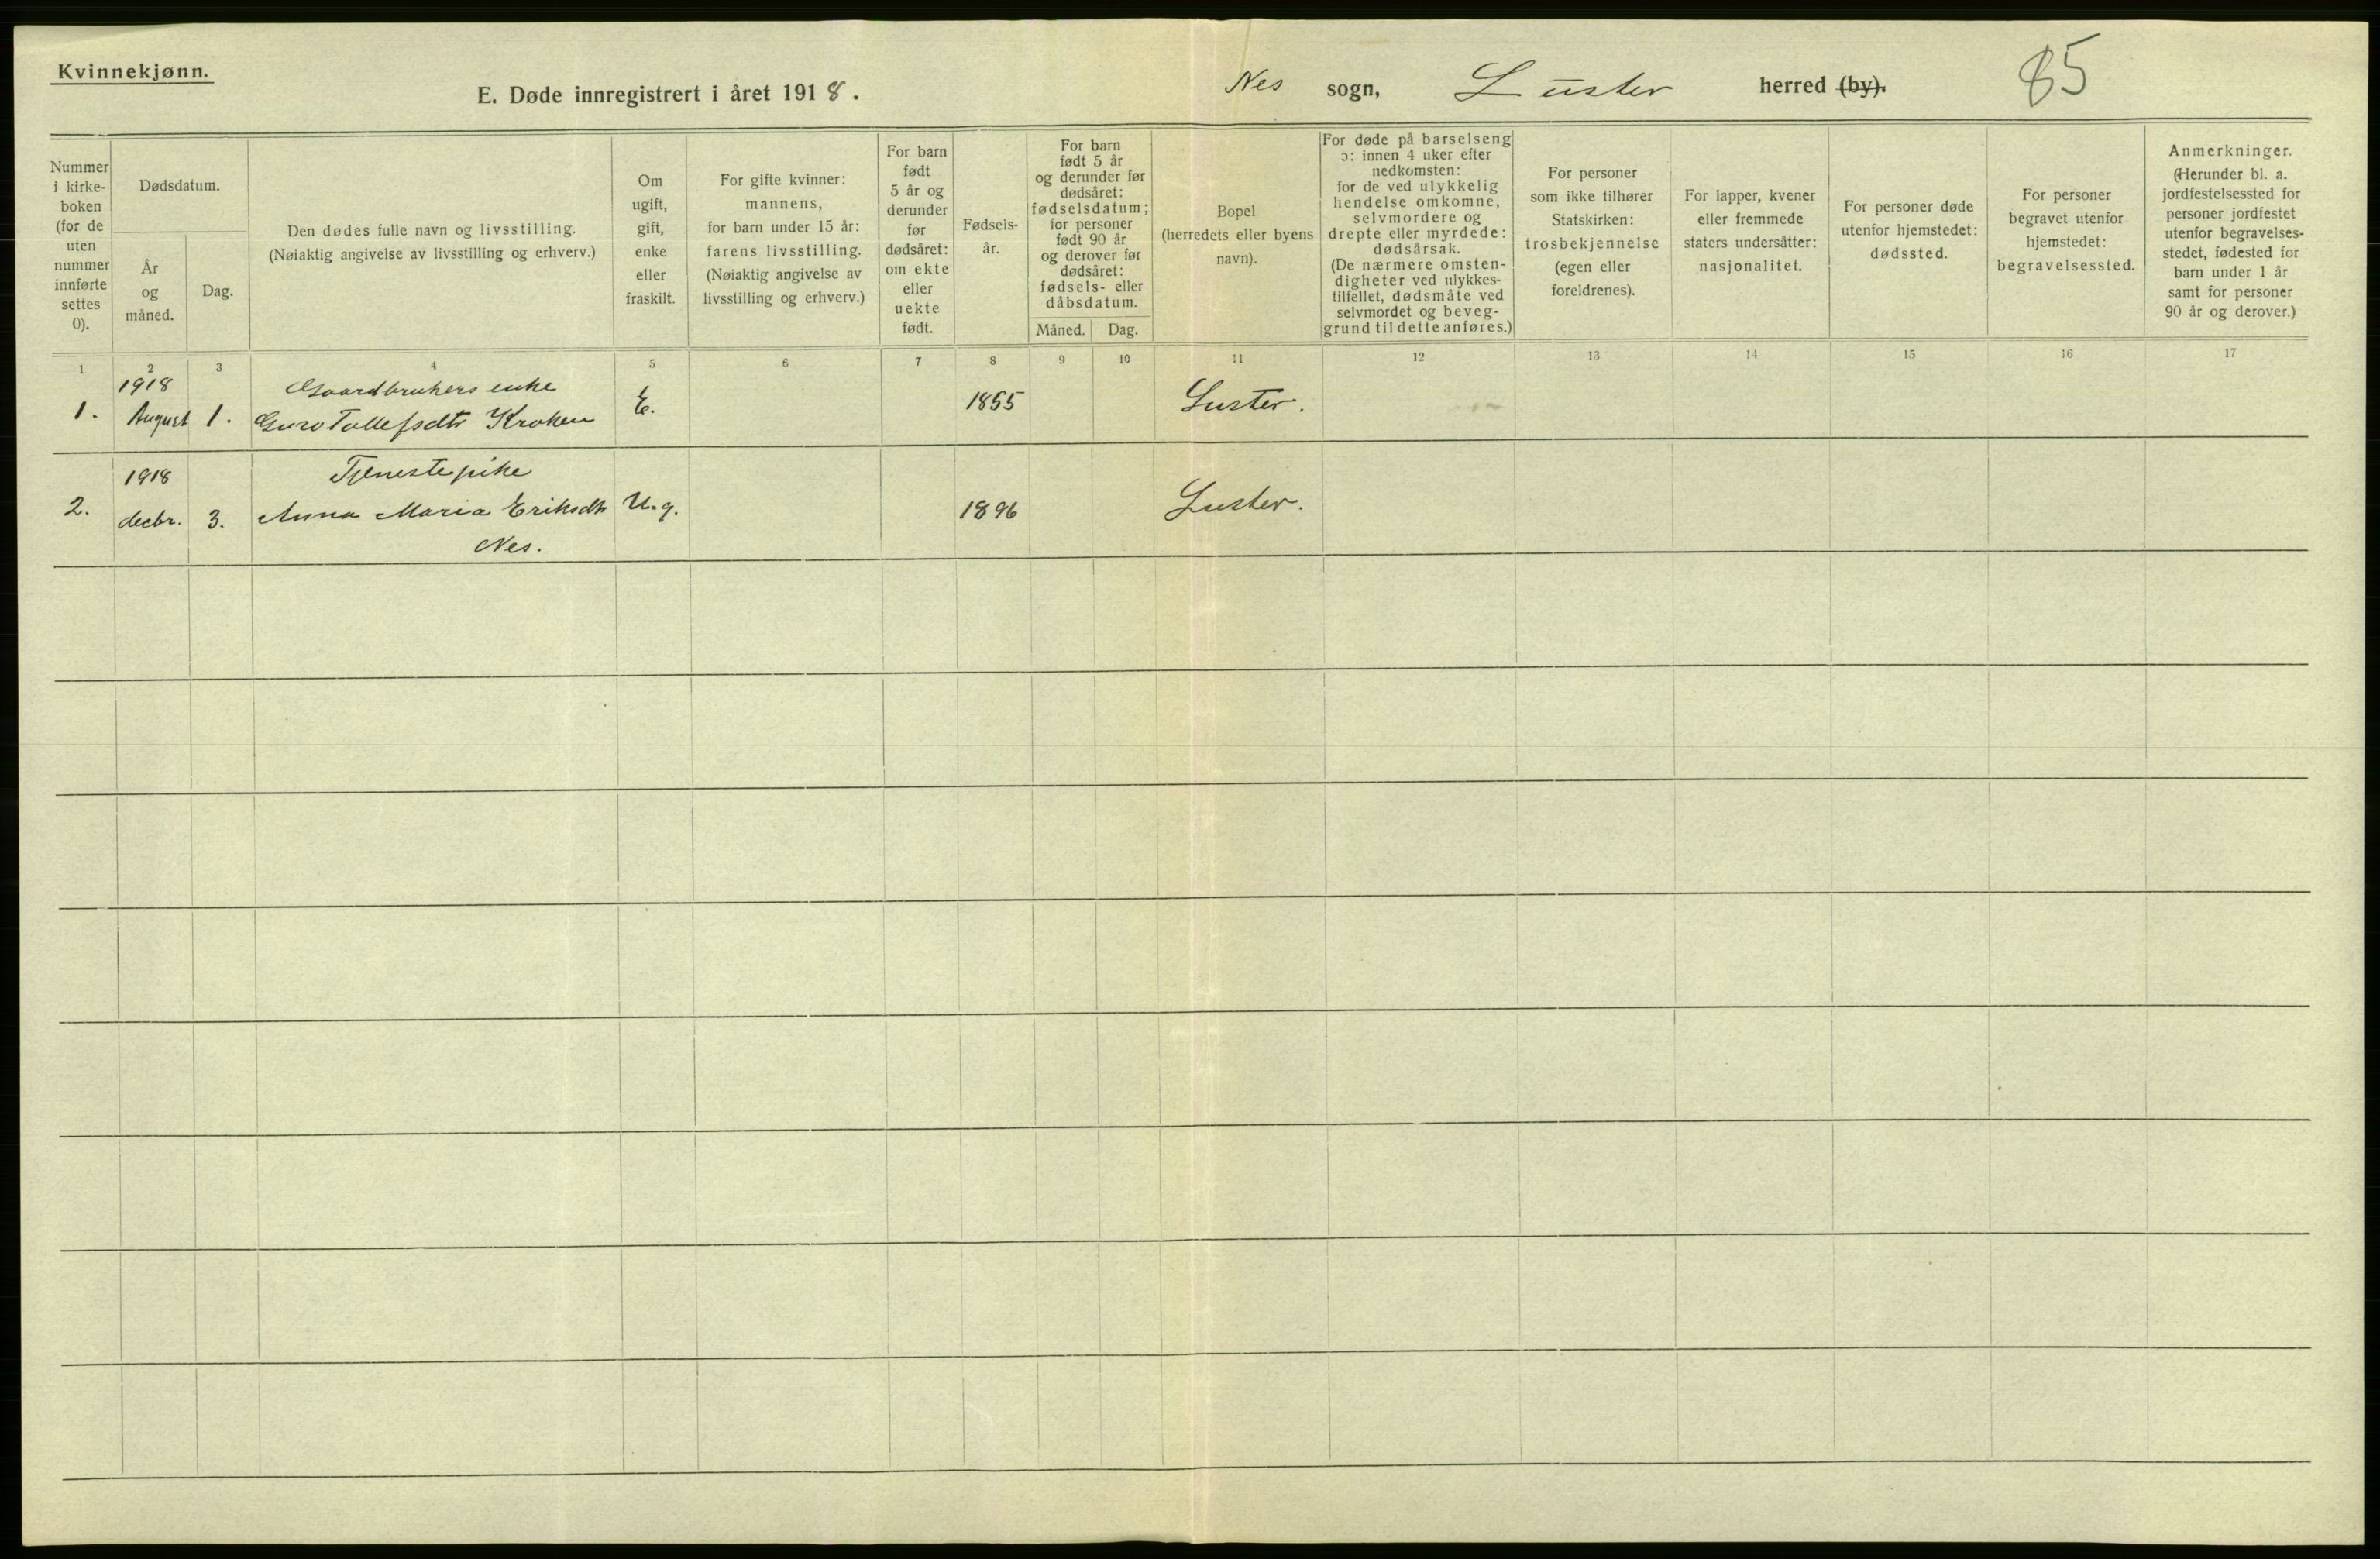 Kvinnekjønn.
E. Døde innregistrert i året 1918.
Nes sogn, Luster herred (by).
85
Nummer
i kirke-
boken
(for de
uten
nummer
innførte
settes
0).
Dødsdatum.
År
og
måned.
Dag.
Den dødes fulle navn og livsstilling.
(Nøiaktig angivelse av livsstilling og erhverv.)
Om
ugift,
gift,
enke
eller
fraskilt.
For gifte kvinner:
mannens,
for barn under 15 år:
farens livsstilling.
(Nøiaktig angivelse av
livsstilling og erhverv.)
For barn
født
5 år og
derunder
før
dødsåret:
om ekte
eller
uekte
født.
Fødsels-
år.
For barn
født 5 år
og derunder før
dødsåret:
fødselsdatum;
for personer
født 90 år
og derover før
dødsåret:
fødsels- eller
dåbsdatum.
Måned.
Dag.
Bopel
(herredets eller byens
navn).
For døde på barselseng
ɔ: innen 4 uker efter
nedkomsten:
for de ved ulykkelig
hendelse omkomne,
selvmordere og
drepte eller myrdede:
dødsårsak.
(De nærmere omsten-
digheter ved ulykkes-
tilfellet, dødsmåte ved
selvmordet og beveg-
grund til dette anføres.)
For personer
som ikke tilhører
Statskirken:
trosbekjennelse
(egen eller
foreldrenes).
For lapper, kvener
eller fremmede
staters undersåtter:
nasjonalitet.
For personer døde
utenfor hjemstedet:
dødssted.
For personer
begravet utenfor
hjemstedet:
begravelsessted.
Anmerkninger.
(Herunder bl. a.
jordfestelsessted for
personer jordfestet
utenfor begravelses-
stedet, fødested for
barn under 1 år
samt for personer
90 år og derover.)
1 2 3 4 5 6 7 8 9 10 11 12 13 14 15 16 17
1918 Gaardbrukers enke
1. August 1. Guro Tollefsdtr Kroken E. 1855 Luster.
1918 Tjenestepike
2. decbr. 3. Anna Maria Eriksdtr U.g. 1896 Luster.
Nes.